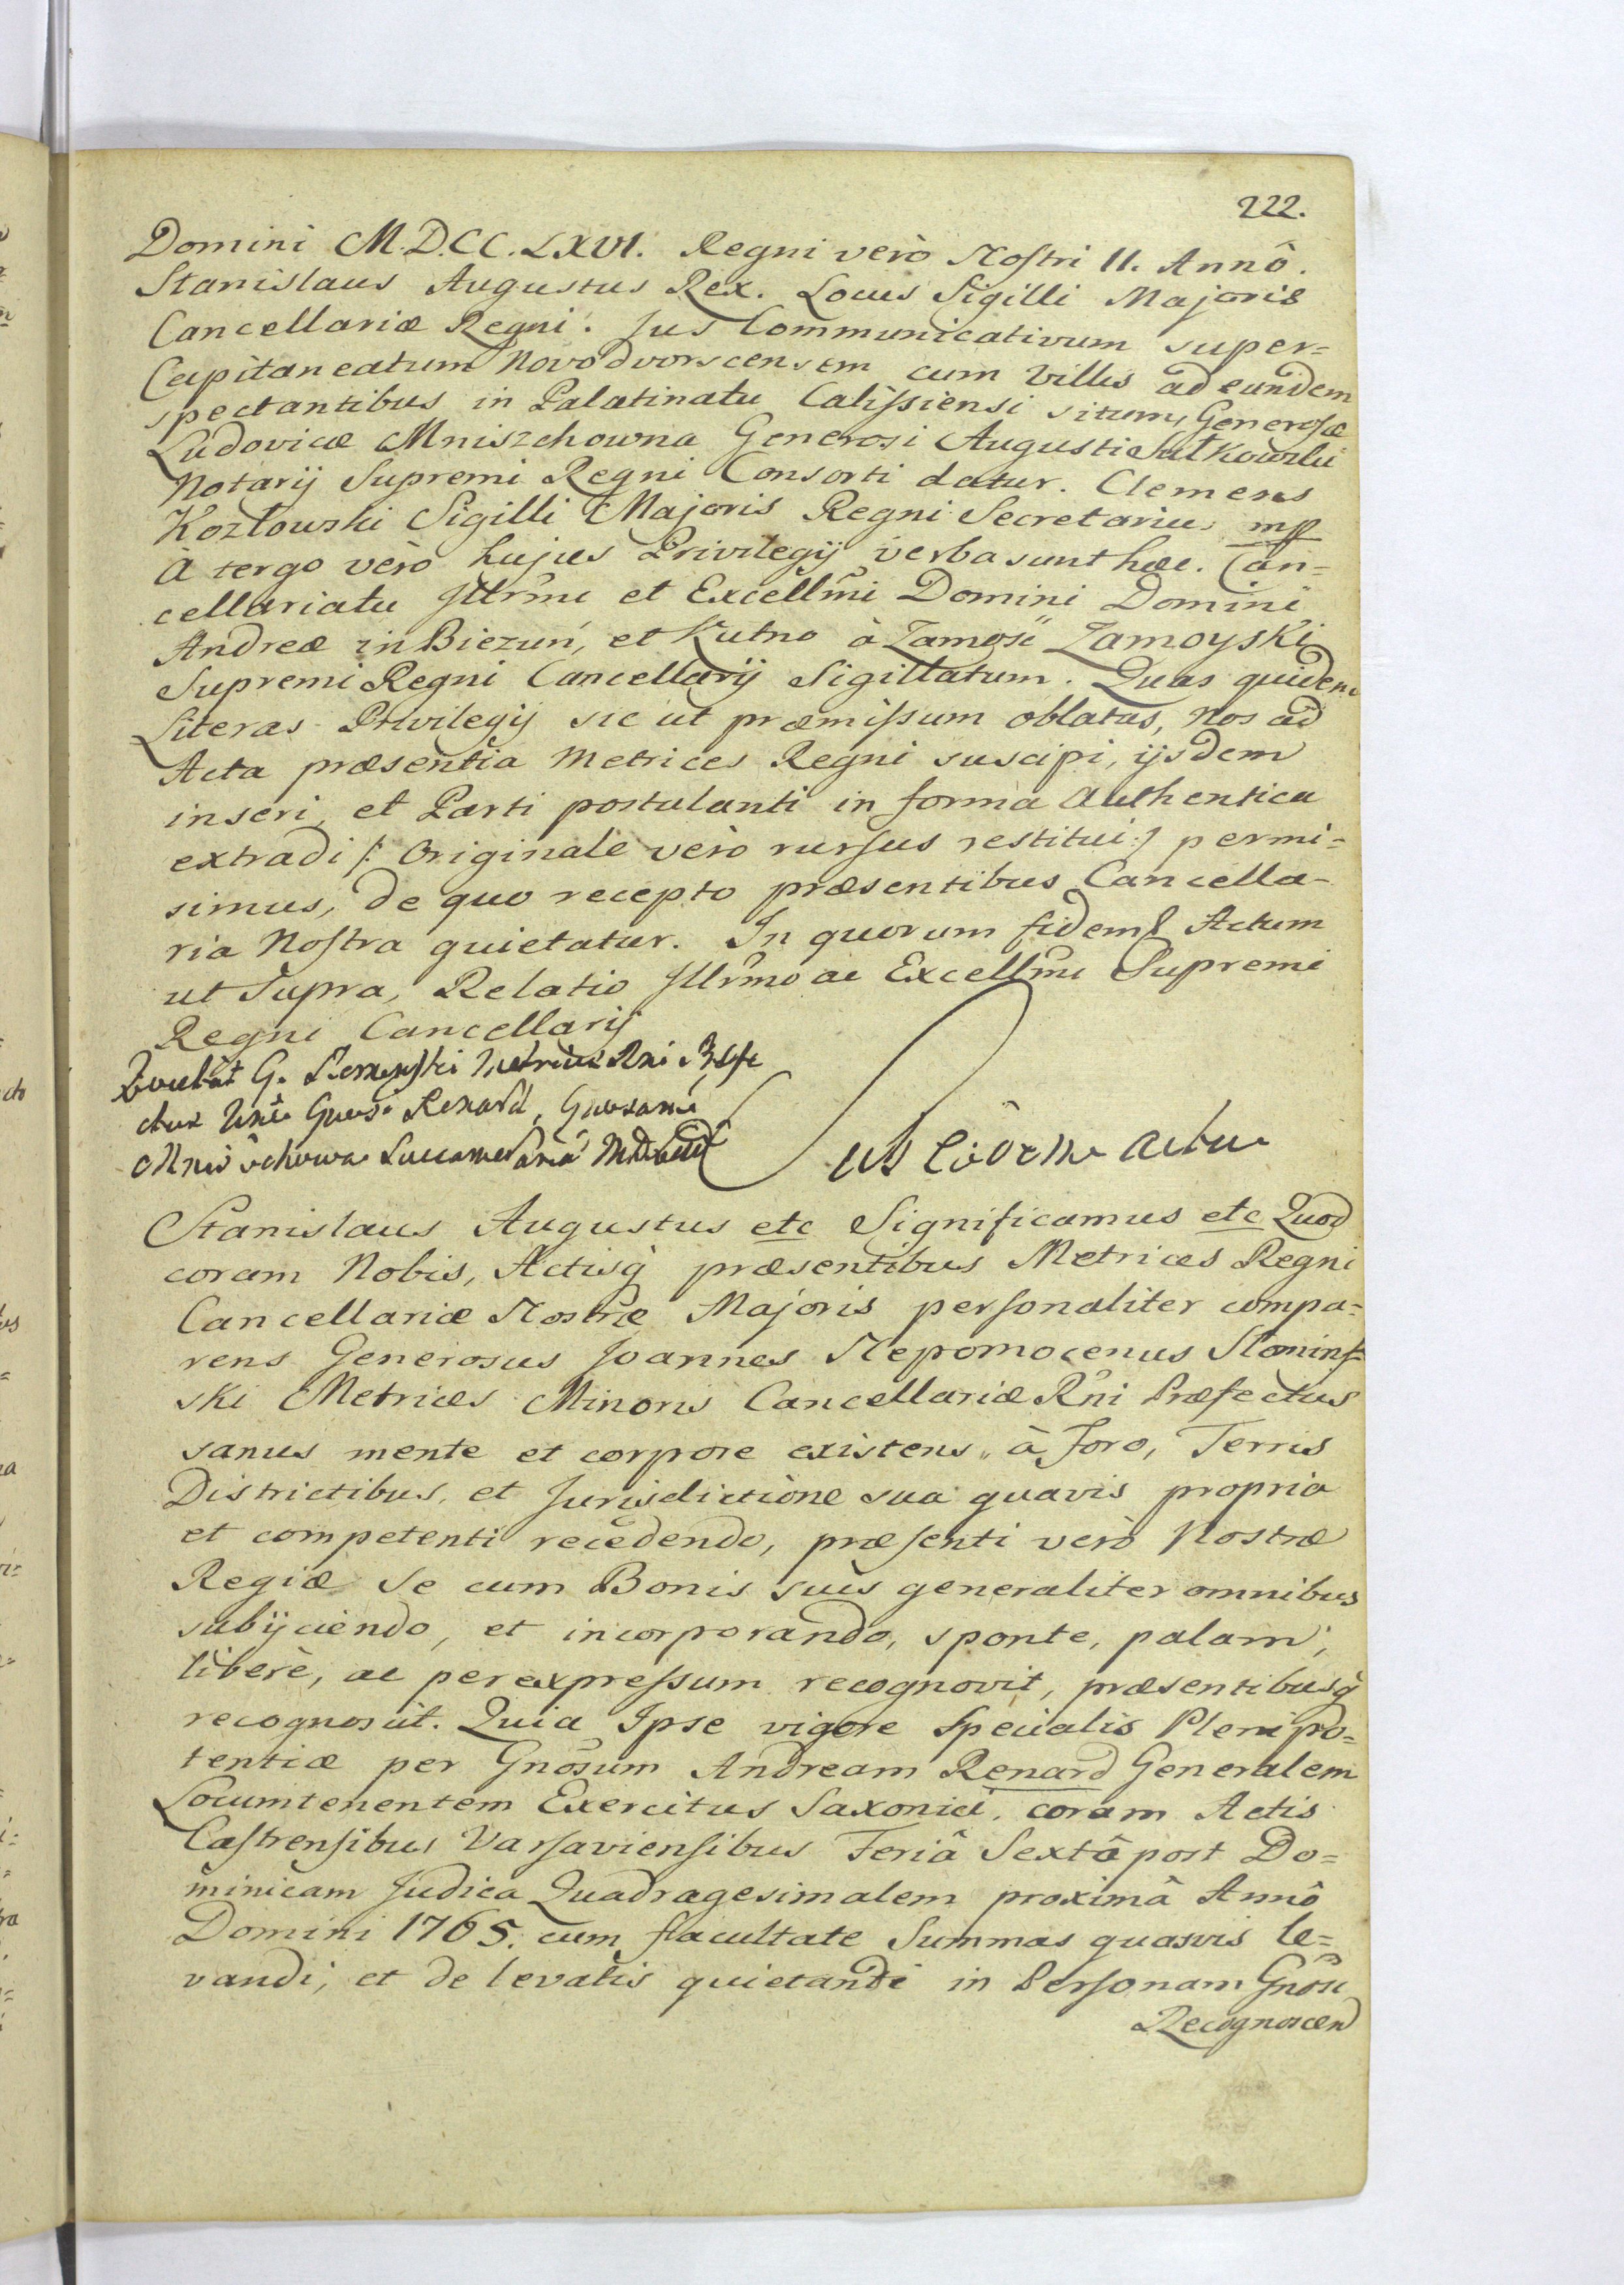 222.
Domini M.D.CC.LXVI. Regni verò Nostri II. Annô.
Stanislaus Augustus Rex. Locus Sigilli Majoris
Cancellariæ Regni. Jus Communicativum super=
Capitaneatum Novodvorscensem cum Villis ad eundem
spectantibus in Palatinatu Calissiensi situm, Generosæ
Ludovicæ Mniszchowna Generosi Augusti Sułkowski
Notarij Supremi Regni Consorti datur. Clemens
Kozłowski Sigilli Majoris Regni Secretarius mp
À tergo verò hujus Privilegij verba sunt hæc. Can=
cellariatu Illrmi et Excellmi Domini Domini
Andreæ in Biezuń, et Kutno à Zamoscÿ Zamoyski
Supremi Regni Cancellarij Sigillatum. Quas quidem
Literas Privilegij sic ut præmissum oblatas, Nos ad
Acta præsentia Metrices Regni suscipi, ijsdem
inseri, et Parti postulanti in forma authentica
extradi /: Originale verò rursus restitui :/ permi=
simus, de quo recepto præsentibus Cancella-
ria Nostra quietatur. In quorum fidem Actum
ut Supra, Relatio Illrmo ac Excellmi Supremi
Regni Cancellarij
G. Rni Præfe
ctus Renard,
Stanislaus Augustus etc Significamus etc Quod
coram Nobis, Actisq̀ præsentibus Metrices Regni
Cancellariæ Nostræ Majoris personaliter compa=
rens Generosus Joannes Nepomocenus Słomins=
ski Metrices Minoris Cancellariæ Rni Præfectus
sanus mente et corpore existens, à foro, Terris
Districtibus, et Jurisdictione sua quavis propria
et competenti recedendo, præsenti verò Nostræ
Regiæ se cum Bonis suis generaliter omnibus
subijciendo, et incorporando, sponte, palam,
liberè, ac per expressum recognovit, præsentibusq̀
recognoscit. Quia Ipse vigore specialis Plenipo=
tentiæ per Gnôsum Andream Renard Generalem
Locumtenentem Exercitus Saxonici, coram Actis
Castrensibus Varsaviensibus Feriâ Sextâ post Do=
minicam Judica Quadragesimalem proximâ Annô
Domini 1765. cum facultate Summas quasvis le=
vandi, et de levatis quietandi in Personam Gnôsi
Recognoscen